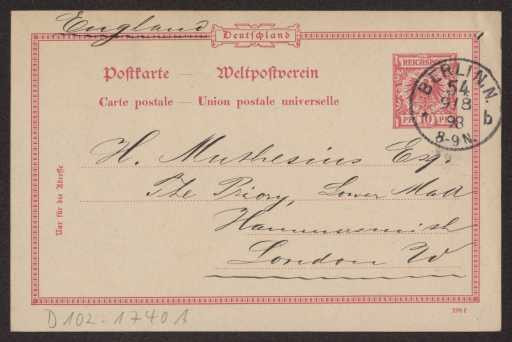 England
Deutschland
Postkarte — Weltpostverein
Carte postale — Union postale universelle
REICHSPOST
PF 10 PF
BERLIN.N.
54
9/8
98
8-9N.
b
H. Muthesius Esq.
The Priory, Lower Mall
Hammersmith
London W
Nur für die Adresse
D102-1740